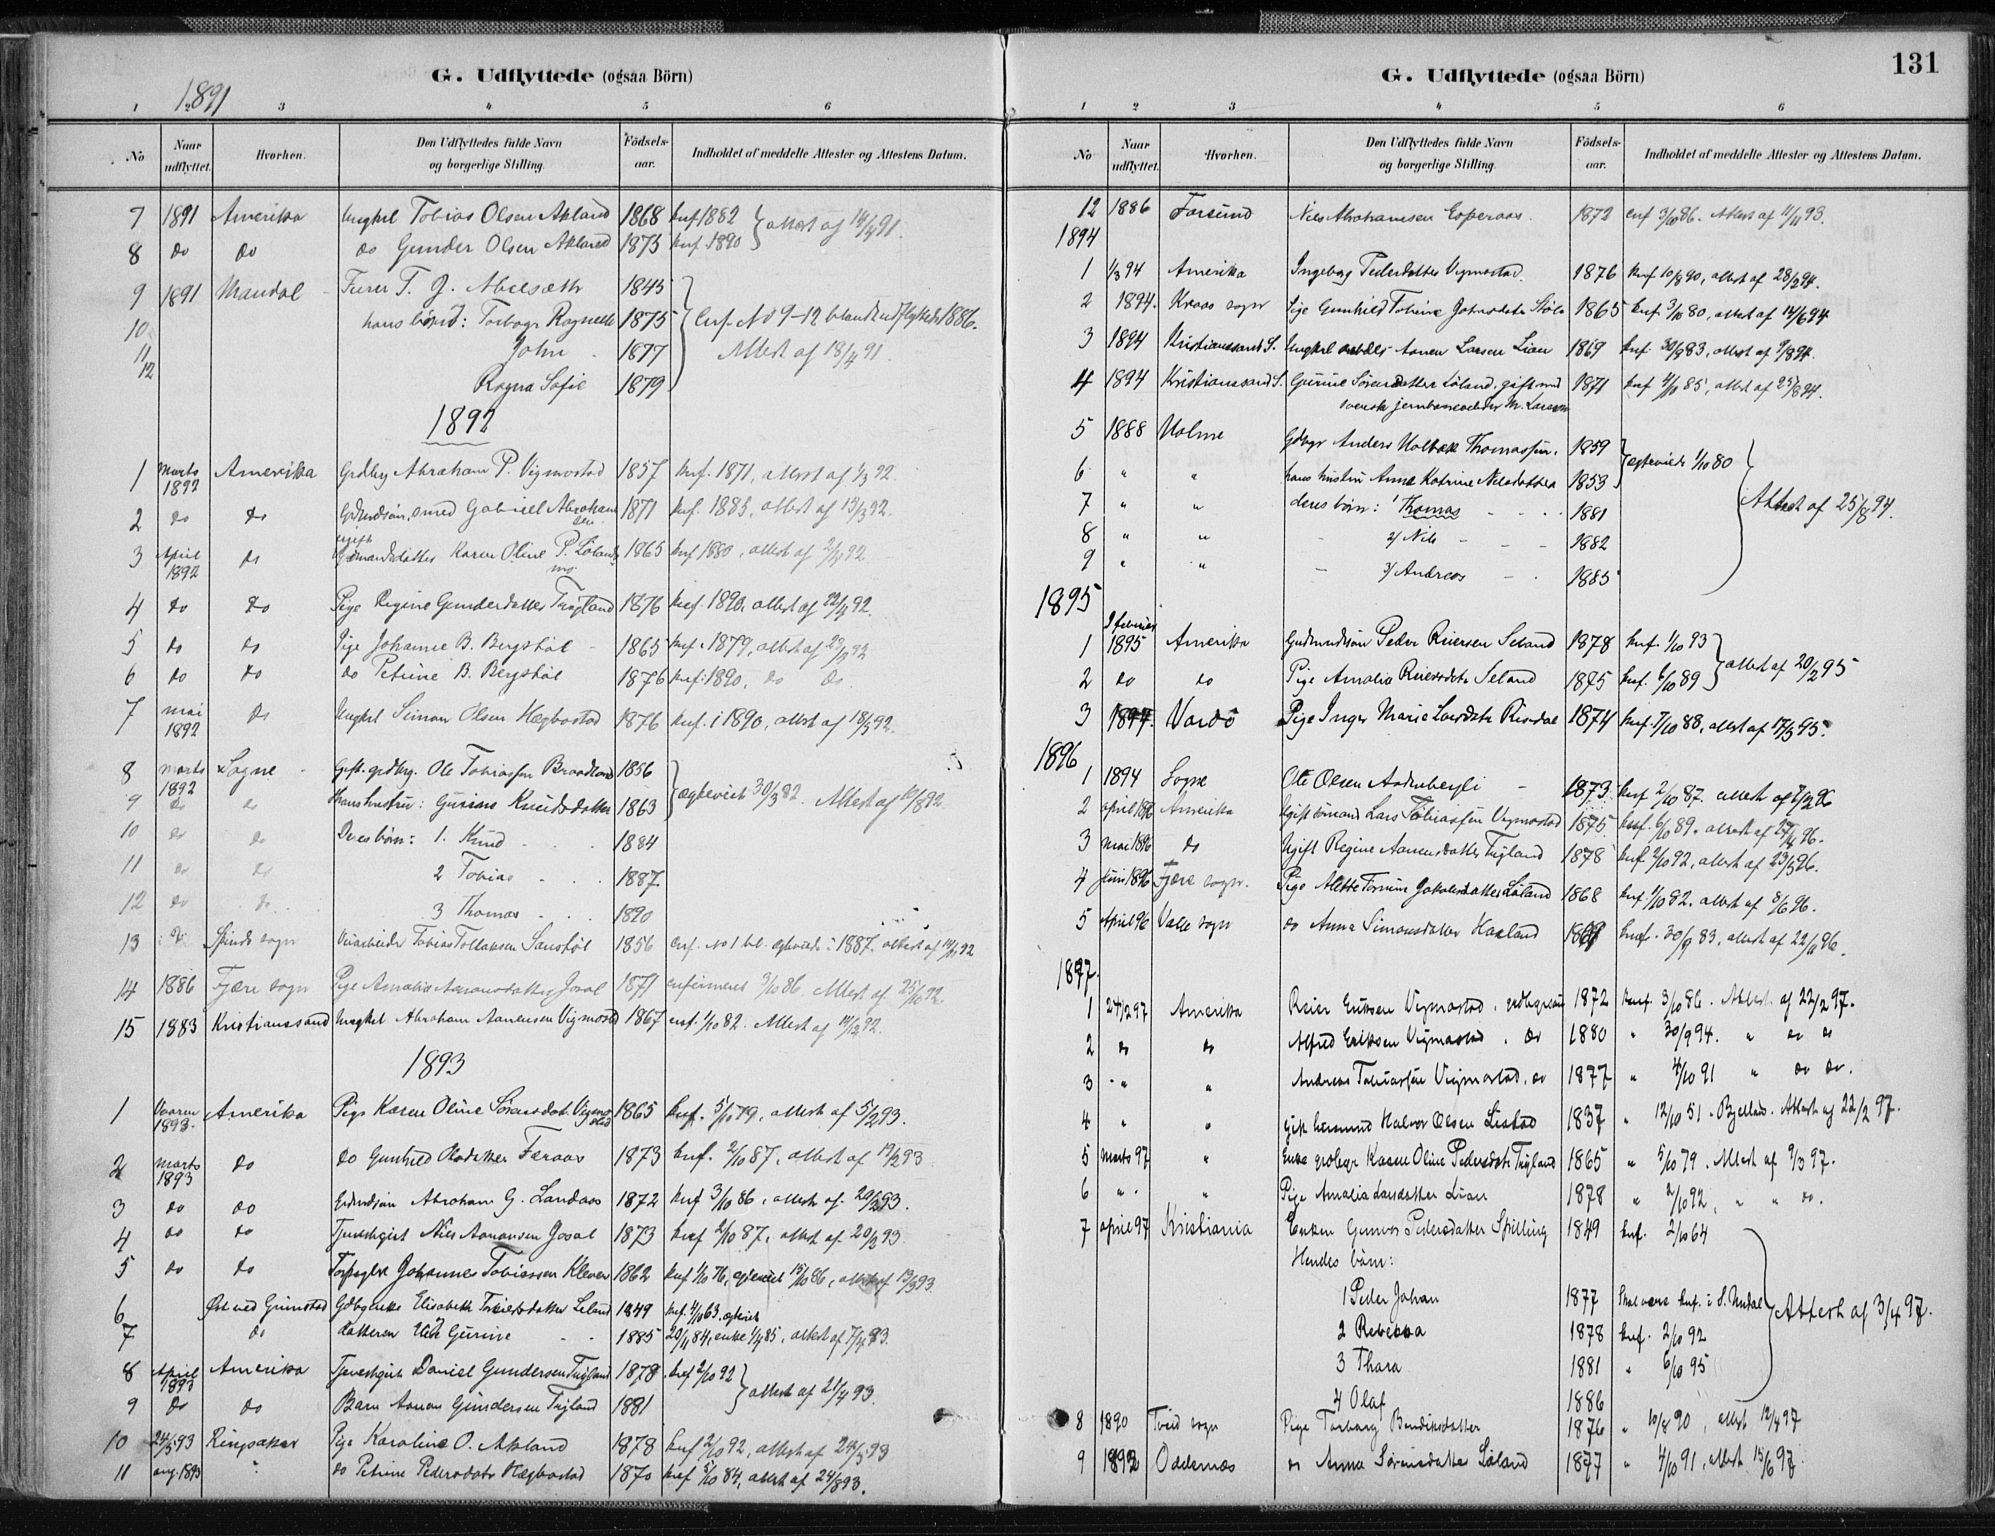 G. Udflyttede (ogsaa Börn)
1891
1 2 3 4 5 6
No Naar udflyttet. Hvorhen. Den Udflyttedes fulde Navn og borgerlige Stilling. Födsels-aar. Indholdet af meddelte Attester og Attestens Datum.
7 1891 Amerika Ungkrl Tobias Olsen Akland 1868 knf 1882 } attest af 14/4 91.
8 do do do Gunder Olsen Akland 1873 knf. 1890
9 1891 Mandal Furer T. G. 1845
10 hans börn: 1875 } Cnf. No 9-12 blandt udflyttede 1886.
11 John 1877 Attest af 18/4 91.
12 Ragna Sofie 1879
1892
1 Marts 1892 Amerika Grdbrg Abraham P. Vigmostad 1857 knf. 1871, attest af 1/3 92.
2 do do Gabriel Abrahamsen 1871 knf. 1885, attest af 13/3 92.
3 April 1892 do Karen Oline P. 1865 knf 1880, attest af 2/4 92
4 do do Pige Regine Gundersdatter Trygland 1876 knf. 1890, attest af 22/4 92.
5 do do Pige Johanne B. Bergstöl 1865 knf. 1879, attest af
6 do do do Petrine B. Bergstöl 1876 knf. 1890, do do
7 mai 1892 do Ungkrl Simon Olsen Hægbostad 1876 knf. i 1890, attest af 18/5 92.
8 marts 1892 Sogne Gift. grdbrg. Ole Tobiassen 1856 } ægteviet 30/3 82. Attest af
9 do do Hans hustru: Knudsdatter 1863
10 do do Deres börn: 1. Knud 1884
11 do do 2 Tobias 1887
12 do do 3 Thomas 1890
13 do Spinds sogn Tobias Tollaksen 1856 Cnf. No 1 bl. ægteviede i 1887. attest af
14 1886 Fjære sogn Pige Amalia Aanonsdatter Josal 1871 confirmeret 3/10 86. Attest af 25/10 92
15 1883 Kristianssand Ungkrl Abraham Aanensen Vigmostad 1867 cnf. 1/10 82. Attest af
1893
1 Vaaren 1893. Amerika Pige Karen Oline Sörensdat. Vigmostad 1865 knf. 5/10 79, attest af 5/2 93.
2 marts 1893 do do Gunhild Olsdatter Faraas 1873 knf. 2/10 87, attest af 19/2 93
3 do do Abraham G. Landaas 1872 knf 3/10 86, attest af 20/2 93.
4 do do Tjenestgut Nils Aanonsen Josal 1873 knf 2/10 87, attest af 20/2 93.
5 do do Johannes Tobiassen Kleven 1862 knf 1/10 76, ægteviet 15/10 86, attest af 13/3 93
6 Öst ved Grimstad Gdbgenke Elisabeth Seland 1849 knf. 4/10 63, ægteviet
7 do datteren Gurine 1885 20/11 84, enke 1/4 85, attest af 7/4 93.
8 April 1893 Amerika Tjenestgut Daniel Gundersen Trygland 1878 knf 2/10 92 } attest af 21/4 93.
9 do do Barn Aanon Gundersen Trygland 1881
10 24/5 93 Ringsaker Pige Karoline O. Akland 1878 knf 2/10 92, attest af 24/5 93
11 aug. 1893 " do Petrine Pedersdatr Hægbostad 1870 knf 5/10 84, attest af 24/8 93.
131
G. Udflyttede (ogsaa Börn)
1 2 3 4 5 6
No Naar udflyttet. Hvorhen. Den Udflyttedes fulde Navn og borgerlige Stilling. Födsels-aar. Indholdet af meddelte Attester og Attestens Datum.
12 1886 Farsund Nils Abrahamsen 1872 cnf 3/10 86. Attest af 11/11 93.
1894
1 1/3 94 Amerika Ingeborg Pedersdatter Vigmostad 1876 knf 10/8 90, attest af 28/2 94.
2 1894. sogn Pige Gunhild Tobine 1865 knf. 3/10 80, attest af 14/6 94
3 1894 Kristianssand S. Ungkrl Aanen Larsen Lian 1869 knf. 30/9 83, attest af 9/8 94.
4 1894 Kristianssand S. Gurine Sörensdatter Löland, gift med 1871 knf 4/10 85, attest af 25/8 94.
svensk jernbanearbeider M. Larsson
5 1888 Holme Gdbgr Anders Holbæk Thomassen. 1859 } ægteviede 1/10 80
6 " " hans hustru Anna Katrine Nilsdatter 1853
7 " " deres börn: 1 Thomas 1881 } Attest af 25/8 94.
8 " " 2/ Nils 1882
9 " " 3/ Andreas 1885
1895
1 I februar 1895 Amerika Peder Reiersen Seland 1878 knf. 1/10 93 } attest af 20/2 95
2 do do Pige Amalia Reiersdatr Seland 1875 knf. 6/10 89
3 1894. Vardö Pige Inger Marie Larsdatr Risdal 1874 knf. 7/10 88, attest af 17/3 95.
1896
1 1894 Sogne Ole Olsen 1873. knf 2/10 87. attest af
2 april 1896 Amerika Lars Tobiassen Vigmostad 1875 knf. 6/10 89. attest af 27/4 96.
3 mai 1896 do Ugift Regine Aanensdatter Trygland 1878 knf 2/10 92, attest af 23/5 96.
4 Juni 1896 Fjære sogn. Pige Alette Jakobsdatter Löland 1868 knf. 1/10 82. attest af 8/6 96.
5 April 96 Valle sogn do Anna Simonsdatter Haaland 1869 knf. 30/9 83, attest af 22/11 96.
1897.
1 24/2 97 Amerika Reier Eriksen Vigmostad, 1872 knf. 3/10 86. Attest af 22/2 97.
2 do do Alfred Eriksen Vigmostad. do 1880 " 30/9 94. " do do
3 " " Andreas Tobiassen Vigmostad. do 1877 " 4/10 91 " do do.
4 " " gift Halvor Olsen 1837 " 12/10 51. Bjelland. Attest af 22/2 97.
5 marts 97 " Enke Karen Oline Pedersdatr Trygland 1865 " 5/10 79. Attest af 9/3 97.
6 " " Pige Amalia Larsdatter Lian 1878 " 2/10 92, " " do.
7 april 97 Kristiania Enken Gunvor Pedersdatter Spilling 1849 knf. 2/10 64
Hendes börn:
1 Peder Johan 1877 Skal være knf. i S. Undal } Attest af 3/4 97.
2 Rebekka 1878 knf. 2/10 92
3 Thara 1881 " 6/10 95
4 Olaf 1886
8 1890 Tveid sogn Pige Torborg Bendiksdatter 1876 " 10/8 90, attest 12/4 97
9 1892 Oddernæs do Anna Sörensdatter Löland 1877 " 4/10 91, attest 15/6 97.